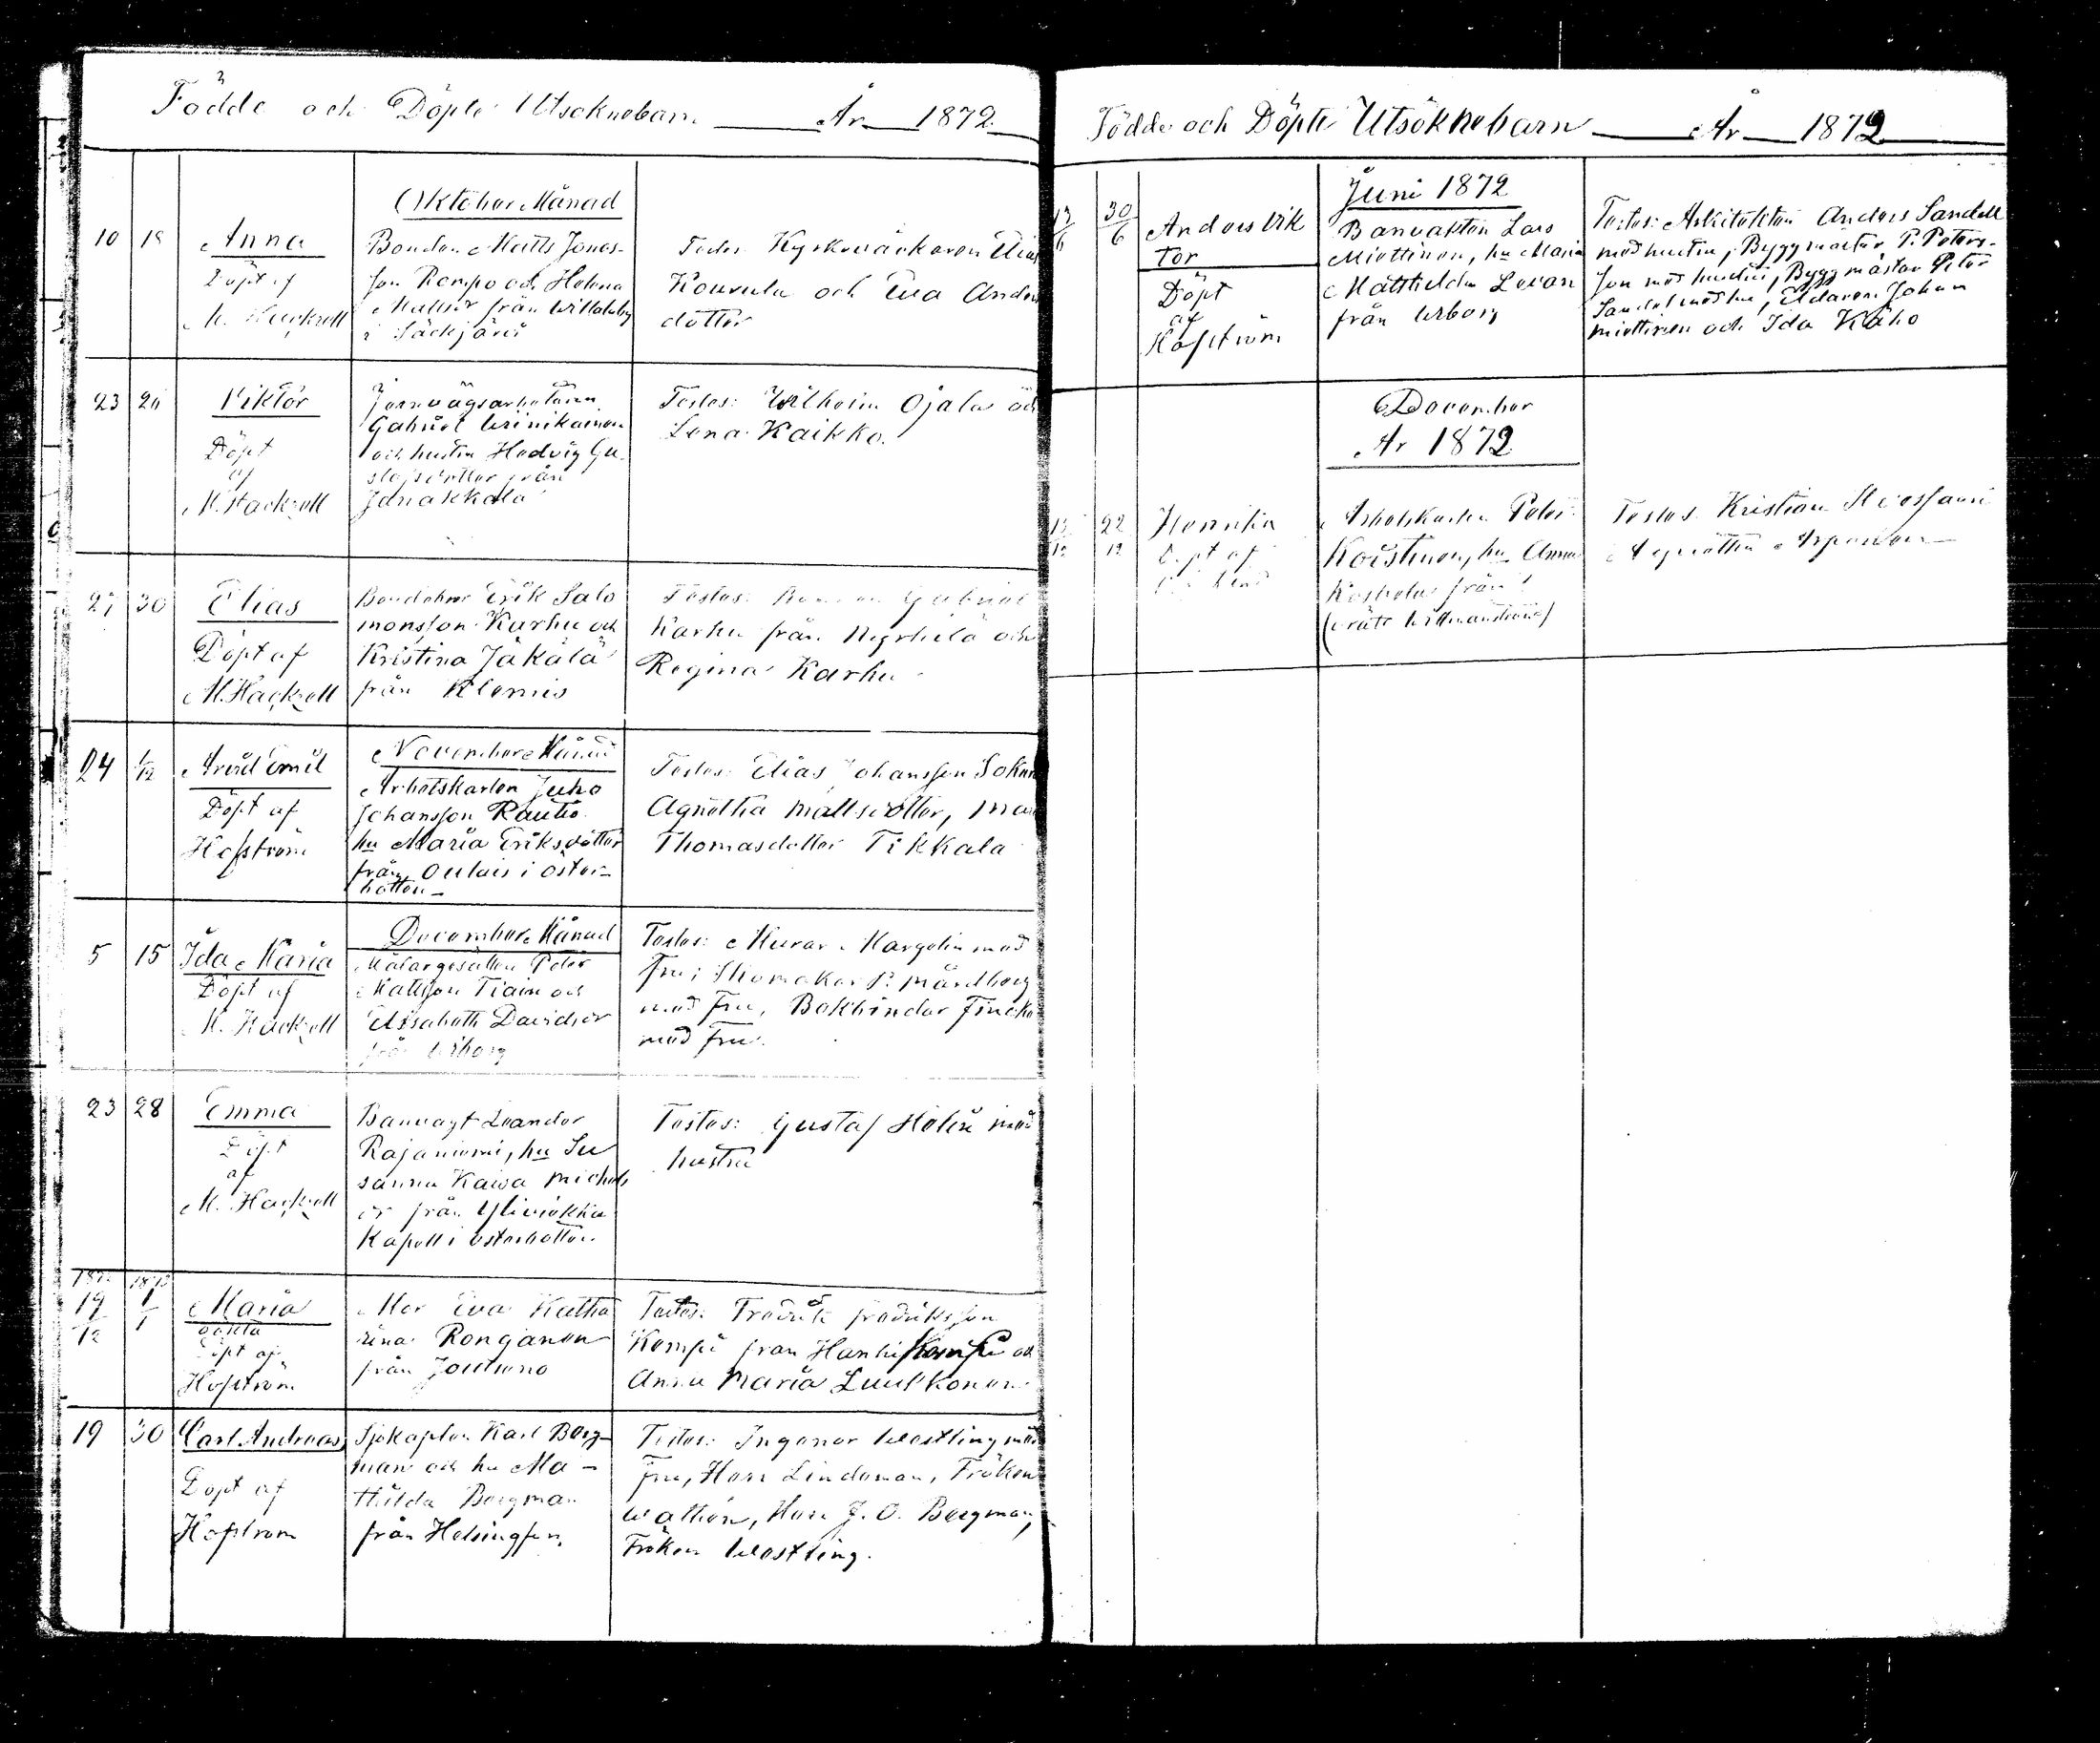 Födde och Döpte Utsoknebarn År 1872
Oktober Månad
10 18 Anna
Döpt af
M. Hackzell
Bonden Matts Jonas-
son Rompo och Helena
Mattsdr från Willakby
i Säckjärvi
Testes: Kyrkoväckaren Elias
Kouvula och Eva Anders
dotter
23 26 Viktor
Döpt
af
M. Hackzell
Jernvägsarbetaren
Gabriel Winikainen
och hustru Hedvig Gu-
stafsdotter från
Janakkala
Testes: Wilhelm Ojala och
Lena Kaikko.
27 30 Elias
Döpt af
M. Hackzell
Bondehus Erik Salo
monsson Karhu och
Kristina Jäkälä
från Klemis
Testes: Gabriel
Karhu från och
Regina Karhu
November Månad
24 1/12 Arvid Emil
Döpt af
Hofström
Arbetskarlen Juho
Johansson Rautio
hu Maria Eriksdotter
från Oulais i Öster-
botten
Testes: Elias Johansson
Agnetha Mattsdotter, Maria
Thomasdotter Tikkala
December Månad
5 15 Ida Maria
Döpt af
M. Hackzell
Målargesällen Peter
Mattsson Tiain och
Elisabeth Davidsdr
från Wiborg
Testes: Murar Margelin med
fru; Skomakar P. Mårdberg
med fru, Bokbindar Fincke
med fru.
23 28 Emma
Döpt
af
M. Hackzell
Banvagt Leander
Rajaniemi, hu Su
sanna Kaisa Michels
dr från Ylivieska
Kapell i Österbotten
Testes: Gustaf Holén med
hustru
1872 1873
19/12 1/1 Maria
oäkta
Döpt af
Hofström
Mor Eva Katha
rina Ronganen
från Joutseno
Testes: Fredrik Fredriksson
Kempi från och
Anna Maria Luukkonen
19 30 Carl Andreas
Döpt af
Hofström
Sjökapten Karl Berg-
man och hu Ma-
thilda Bergman
från Helsingfors
Testes: Ingenör Westling med
fru, Herr Lindeman, Fröken
Wathén, Herr J. O. Bergman,
Fröken Westling.
Födde och Döpte Utsöknebarn År 1872
Juni 1872
13/6 30/6 Anders Vik
tor
Döpt
af
Hofström
Banvakten Lars
Miettinen, hu Maria
Matthilda Levan
från Wiborg
Testes: Arkitekten Anders Sandell
med hustru, Byggmästar P. Peters-
son med hustru, Byggmästar Peter
Sandel med hu, Eldaren Johan
Miettinen och Ida Kaho
December
År 1872
22/12 Henrika
Döpt af
Arbetskarlen Peter
Koistinen, hu Anna
från
Testes Kristian
Agnetha